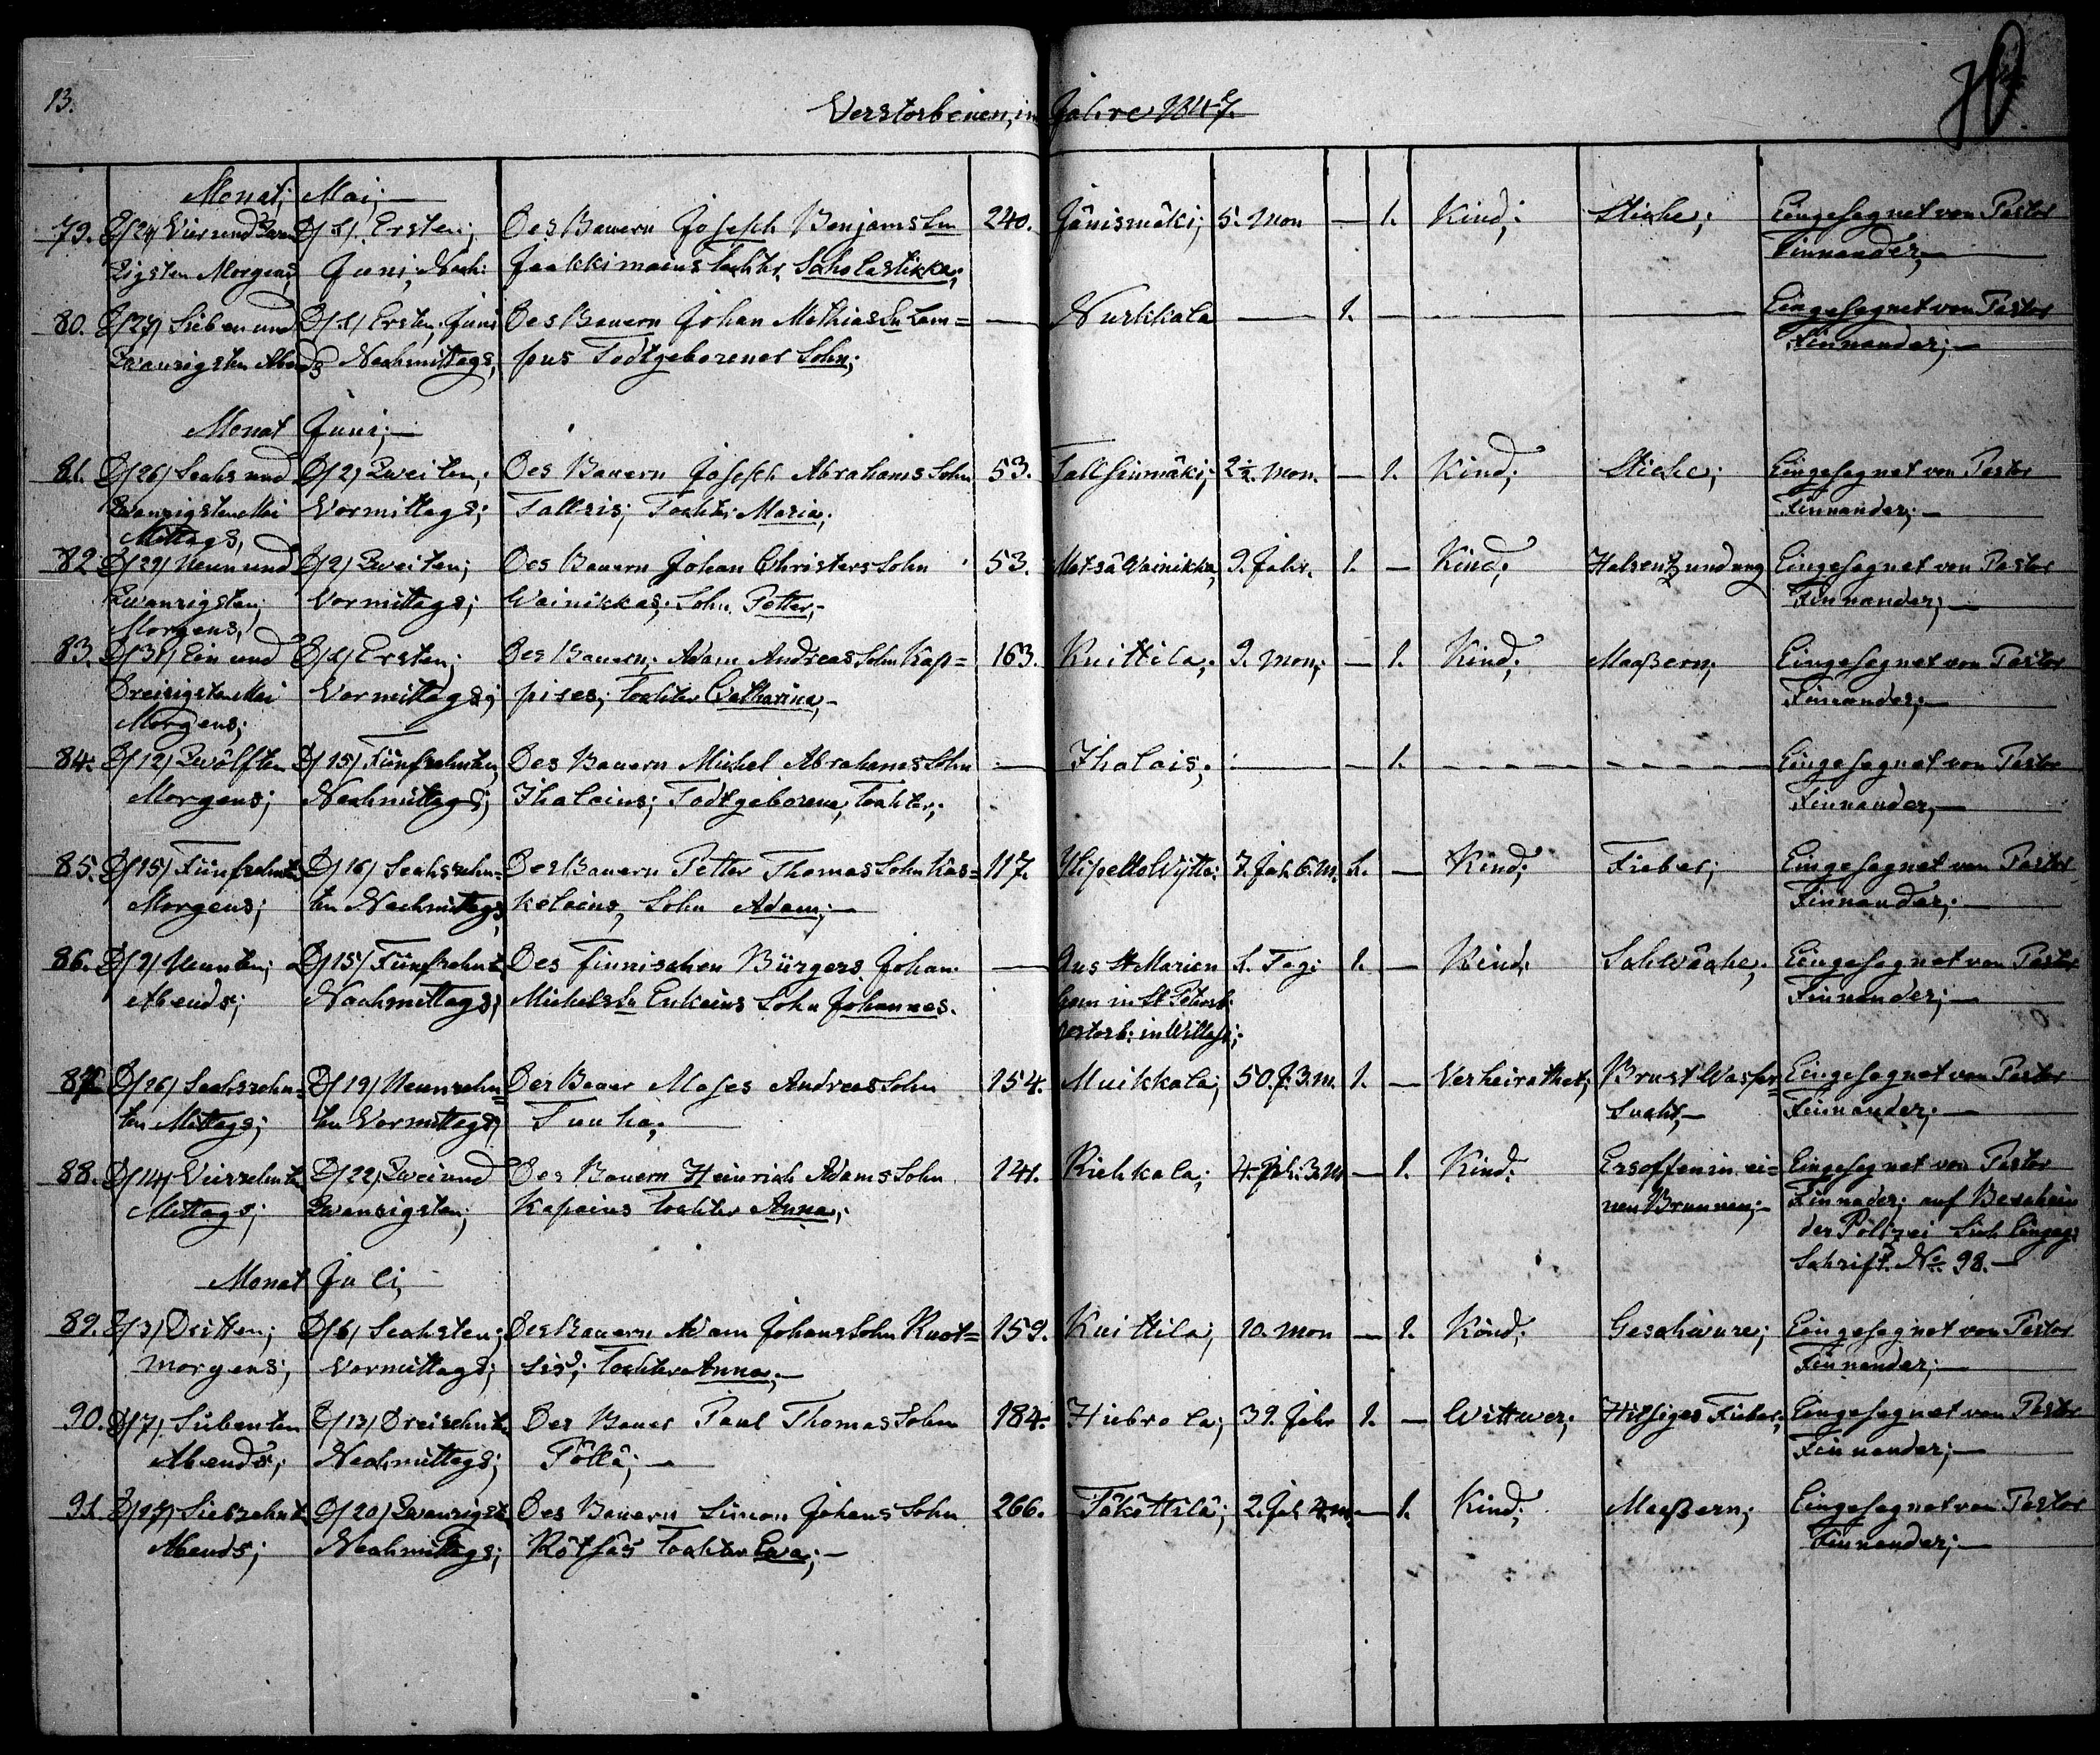 13.
Verstorbenen, in Jahre 1847.
Monat, Mai;
79. D/24/ Vier und Zwan D/1/ Ersten; Des Bauern Joseph Benjams Sn 240. Jänismäki; 5. Mon — 1. Kind; Stiche; Eingesegnet von Pastor
zigsten Morgens, Juni, Nach: Jaakkimains Tochter, Scholastikka; Finnander,
80. D/27/ Sieben und D/1/ Ersten Juni Des Bauern Johan Mathias Sn Lem= — Nurkkala — 1. — Eingesegnet von Pastor
Zwanzigsten Abends Nachmittags, pus Todtgeborener Sohn; Finnander;
Monat Juni;
81. D/26/ Sechs und D/2/ Zweiten; Des Bauern Joseph Abrahams Sohn 53. Tallsinmäki; 2½. Mon. — 1. Kind; Stiche; Eingesegnet von Pastor
Zwanzigsten Mai Vormittags; Tallsis; Tochter Maria; Finnander;
Mittags,
82 D/29/ Neun und D/2/ Zweiten; Des Bauern Johan Christers Sohn 53. Metsä Wainikka, 9. Jahr. 1. — Kind; Halsentzundung Eingesegnet von Pastor
Zwanzigsten, Vormittags; Wainikkas; Sohn Petter; Finnander;
Morgens,
83. D/31/ Ein und D/1/ Ersten; Des Bauern; Adam Andreas Sohn Kap= 163. Knittila; 9. Mon; — 1. Kind; Maaßern; Eingesegnet von Pastor
Dreizigsten Mai Vormittags; pises; Tochter Catharina, Finnander;
Morgens;
84. D/12/ Zwölften D/15/ Fünfzehnten, Des Bauern Michel Abrahams Sohn — Ihalais; — — 1. — Eingesegnet von Pastor
Morgens; Nachmittags; Ihalains; Todtgeborene, Tochter; Finnander,
85. D/15/ Fünfzehnten D/16/ Sechszehn= Des Bauern Petter Thomas Sohn Käs= 117. 7. Jah. 6. M. 1. — Kind; Fieber; Eingesegnet von Pastor
Morgens; ten Nachmittags, kelains, Sohn Adam; Finnander;
86. D/9/ Neunten; D/15/ Fünfzehnt. Des Finnischen Bürgers Johan — Aus St Marien 1. Tag: 1. — Kind; Schwäche; Eingesegnet von Pastor
Abends; Nachmittags; Michels Sn Enkains Sohn Johannes. Finnander;
gem in St Petersb:
verstorb: in
87 D/16/ Sechszehn= D/19/ Neunzehn= Der Bauer Moses Andreas Sohn 154. Muikkala; 50. J. 3. M. 1. — Verheirathet; Brust Wasser= Eingesegnet von Pastor
ten Mittags; ten Vormittags; Tuuha; Sucht, Finnander;
88. D/14/ Vierzehnt. D/22/ Zwei und Des Bauern Heinrich Adams Sohn 141. Riehkala; 4. Jah: 3. M — 1. Kind; Ersoffen in ei= Eingesegnet von Pastor
Mittags; Zwanzigsten; Kapains Tochter Anna; nen Brunnen; Finnader; auf Beschein
der Polizei Sieh Eingeg:
Schrift. No. 98.
Monat Juli,
89. D/3/ Dritten; D/6/ Sechsten; Des Bauern Adam Johans Sohn Ruot= 159. Knittila; 10. Mon — 1. Kind; Geschwure; Eingesegnet von Pastor
Morgens; Vormittags; sis; Tochter Anna; Finnander;
90. D/7/ Siebenten D/13/ Dreizehnt. Der Bauer Paul Thomas Sohn 184. Hiebrola; 39. Jahr 1. — Wittwer; Hitsiges Fieber; Eingesegnet von Pastor
Abends; Nachmittags; Föllä; Finnander;
91. D/17/ Siebzehnt. D/20/ Zwanzigst. Des Bauern Simon Johans Sohn 266. Täköttilä; 2. Jah 4. M. — 1. Kind; Maaßern; Eingesegnet von Pastor
Abends; Nachmittags; Rötsäs Tochter Eva; Finnander;